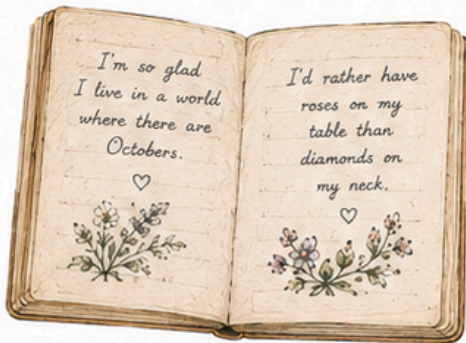 I'm so glad
I live in a world
where there are
Octobers.
I'd rather have
roses on my
table than
diamonds on
my neck.